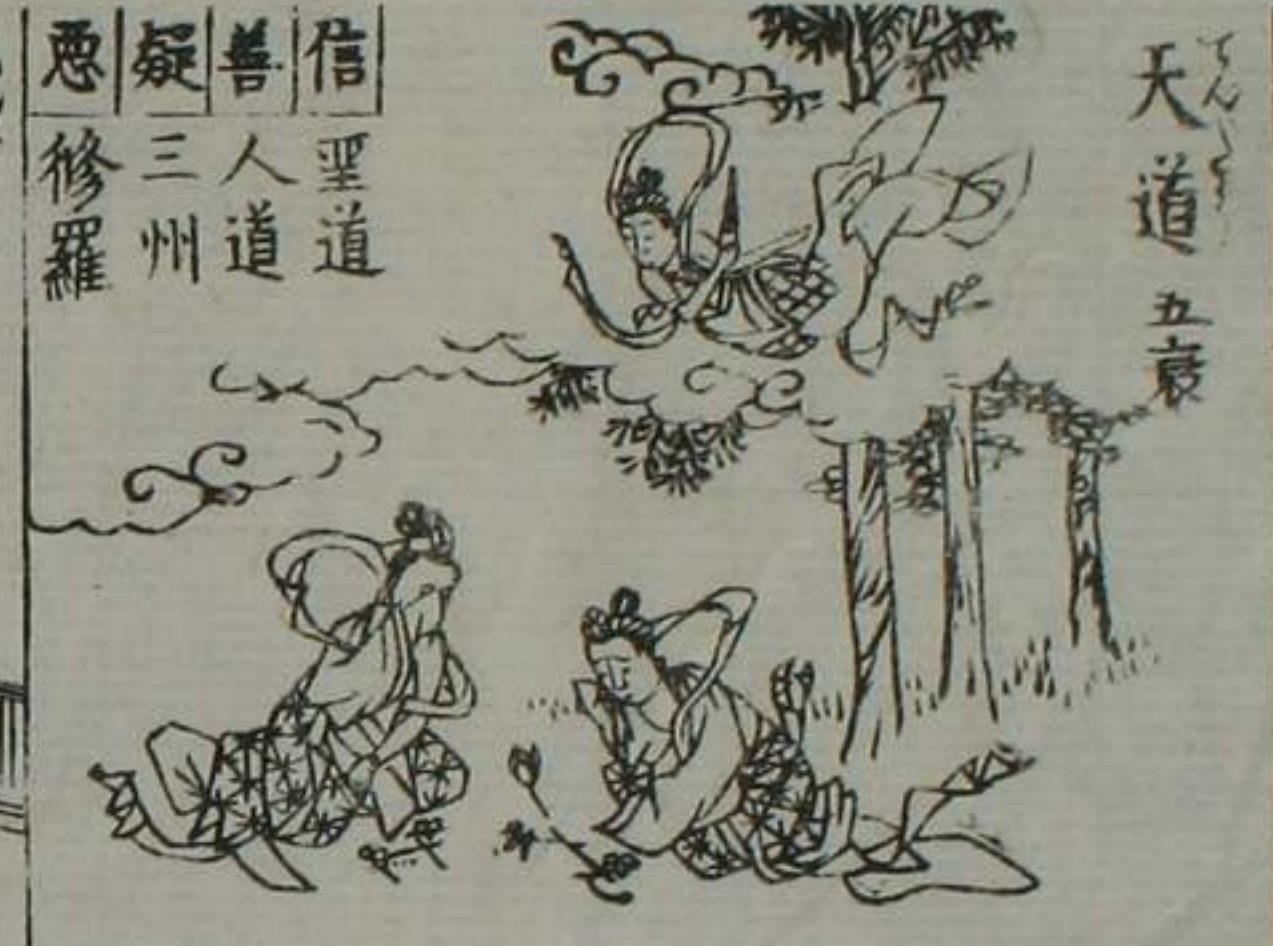 天道五衰
てんどう
信 聖道
善 人道
疑 三州
悪 修羅